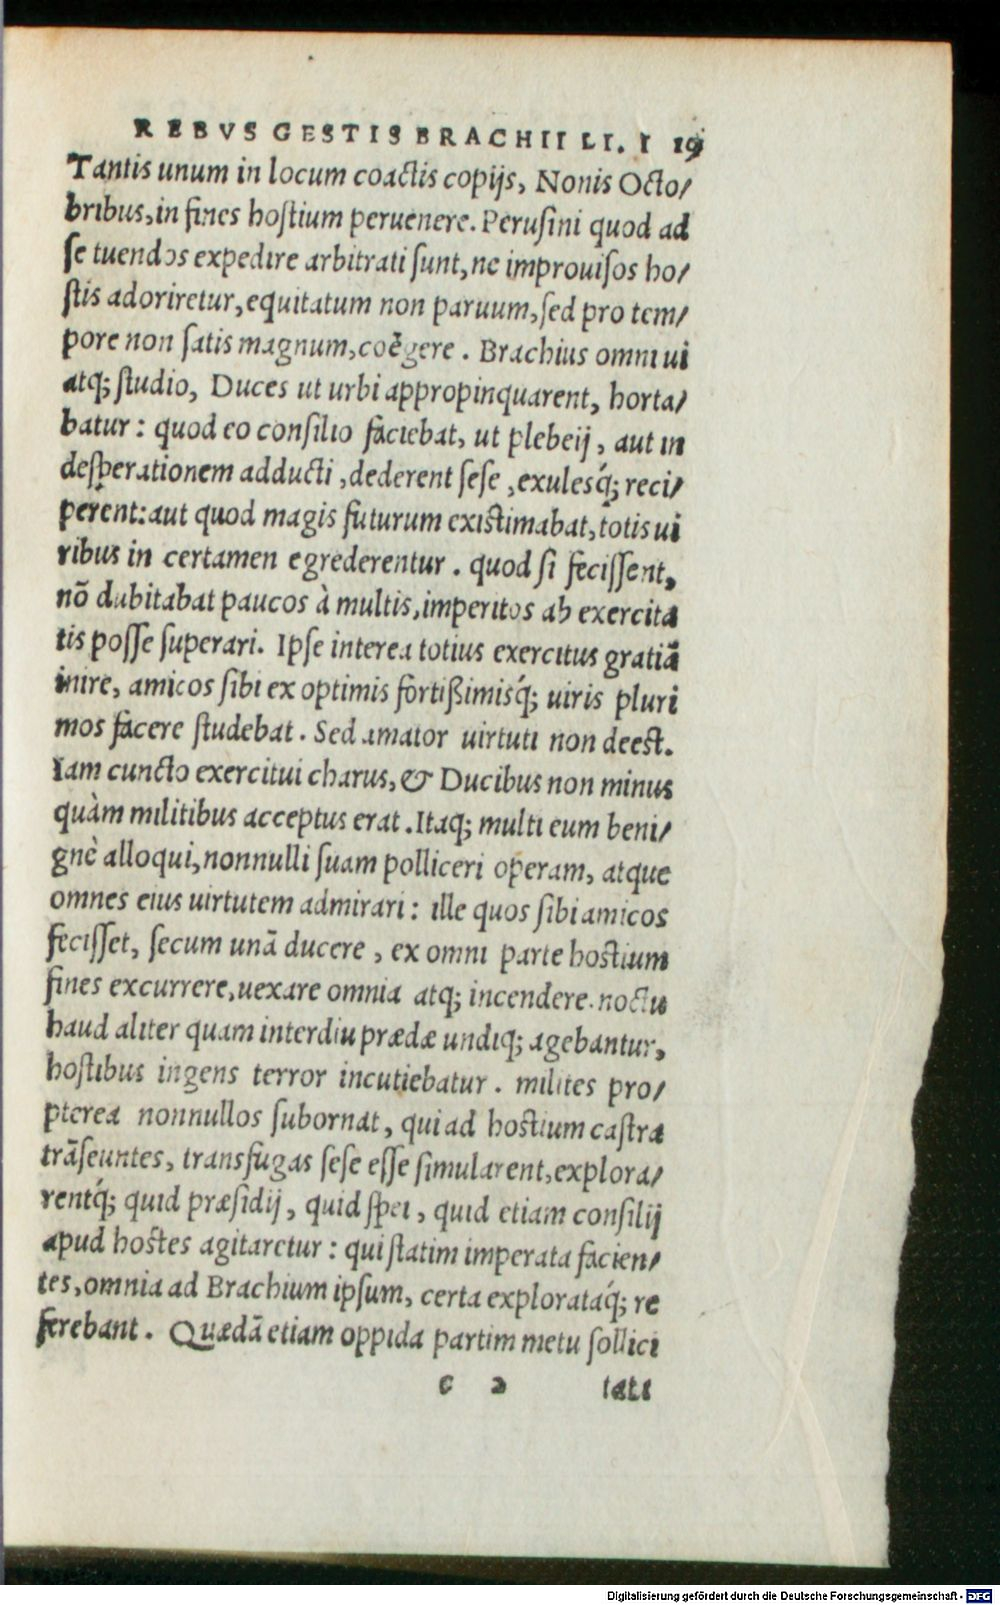 REBVS GESTIS BRACHII LI. I 19
Tantis unum in locum coactis copijs, Nonis Octo/
bribus, in fines hostium peruenere. Perusini quod ad
se tuendos expedire arbitrati sunt, ne improuisos ho/
stis adoriretur, equitatum non paruum, sed pro tem/
pore non satis magnum, coëgere. Brachius omni ui
atq; studio, Duces ut urbi appropinquarent, horta/
batur: quod eo consilio faciebat, ut plebeij, aut in
desperationem adducti, dederent sese, exulesq́; reci/
perent: aut quod magis futurum existimabat, totis ui
ribus in certamen egrederentur. quod si fecissent,
nõ dubitabat paucos à multis, imperitos ab exercita
tis posse superari. Ipse interea totius exercitus gratiã
inire, amicos sibi ex optimis fortißimisq́; uiris pluri
mos facere studebat. Sed amator uirtuti non deest.
Iam cuncto exercitui charus, & Ducibus non minus
quàm militibus acceptus erat. Itaq; multi eum beni/
gnè alloqui, nonnulli suam polliceri operam, atque
omnes eius uirtutem admirari: ille quos sibi amicos
fecisset, secum unã ducere, ex omni parte hostium
fines excurrere, uexare omnia atq; incendere. noctu
haud aliter quam interdiu prædæ undiq; agebantur,
hostibus ingens terror incutiebatur. milites pro/
pterea nonnullos subornat, qui ad hostium castra
trãseuntes, transfugas sese esse simularent, explora/
rentq́; quid præsidij, quid spei, quid etiam consilij
apud hostes agitaretur: qui statim imperata facien/
tes, omnia ad Brachium ipsum, certa explorataq́; re
ferebant. Quædã etiam oppida partim metu sollici
c 2 tati
Digitalisierung gefördert durch die Deutsche Forschungsgemeinschaft - DFG